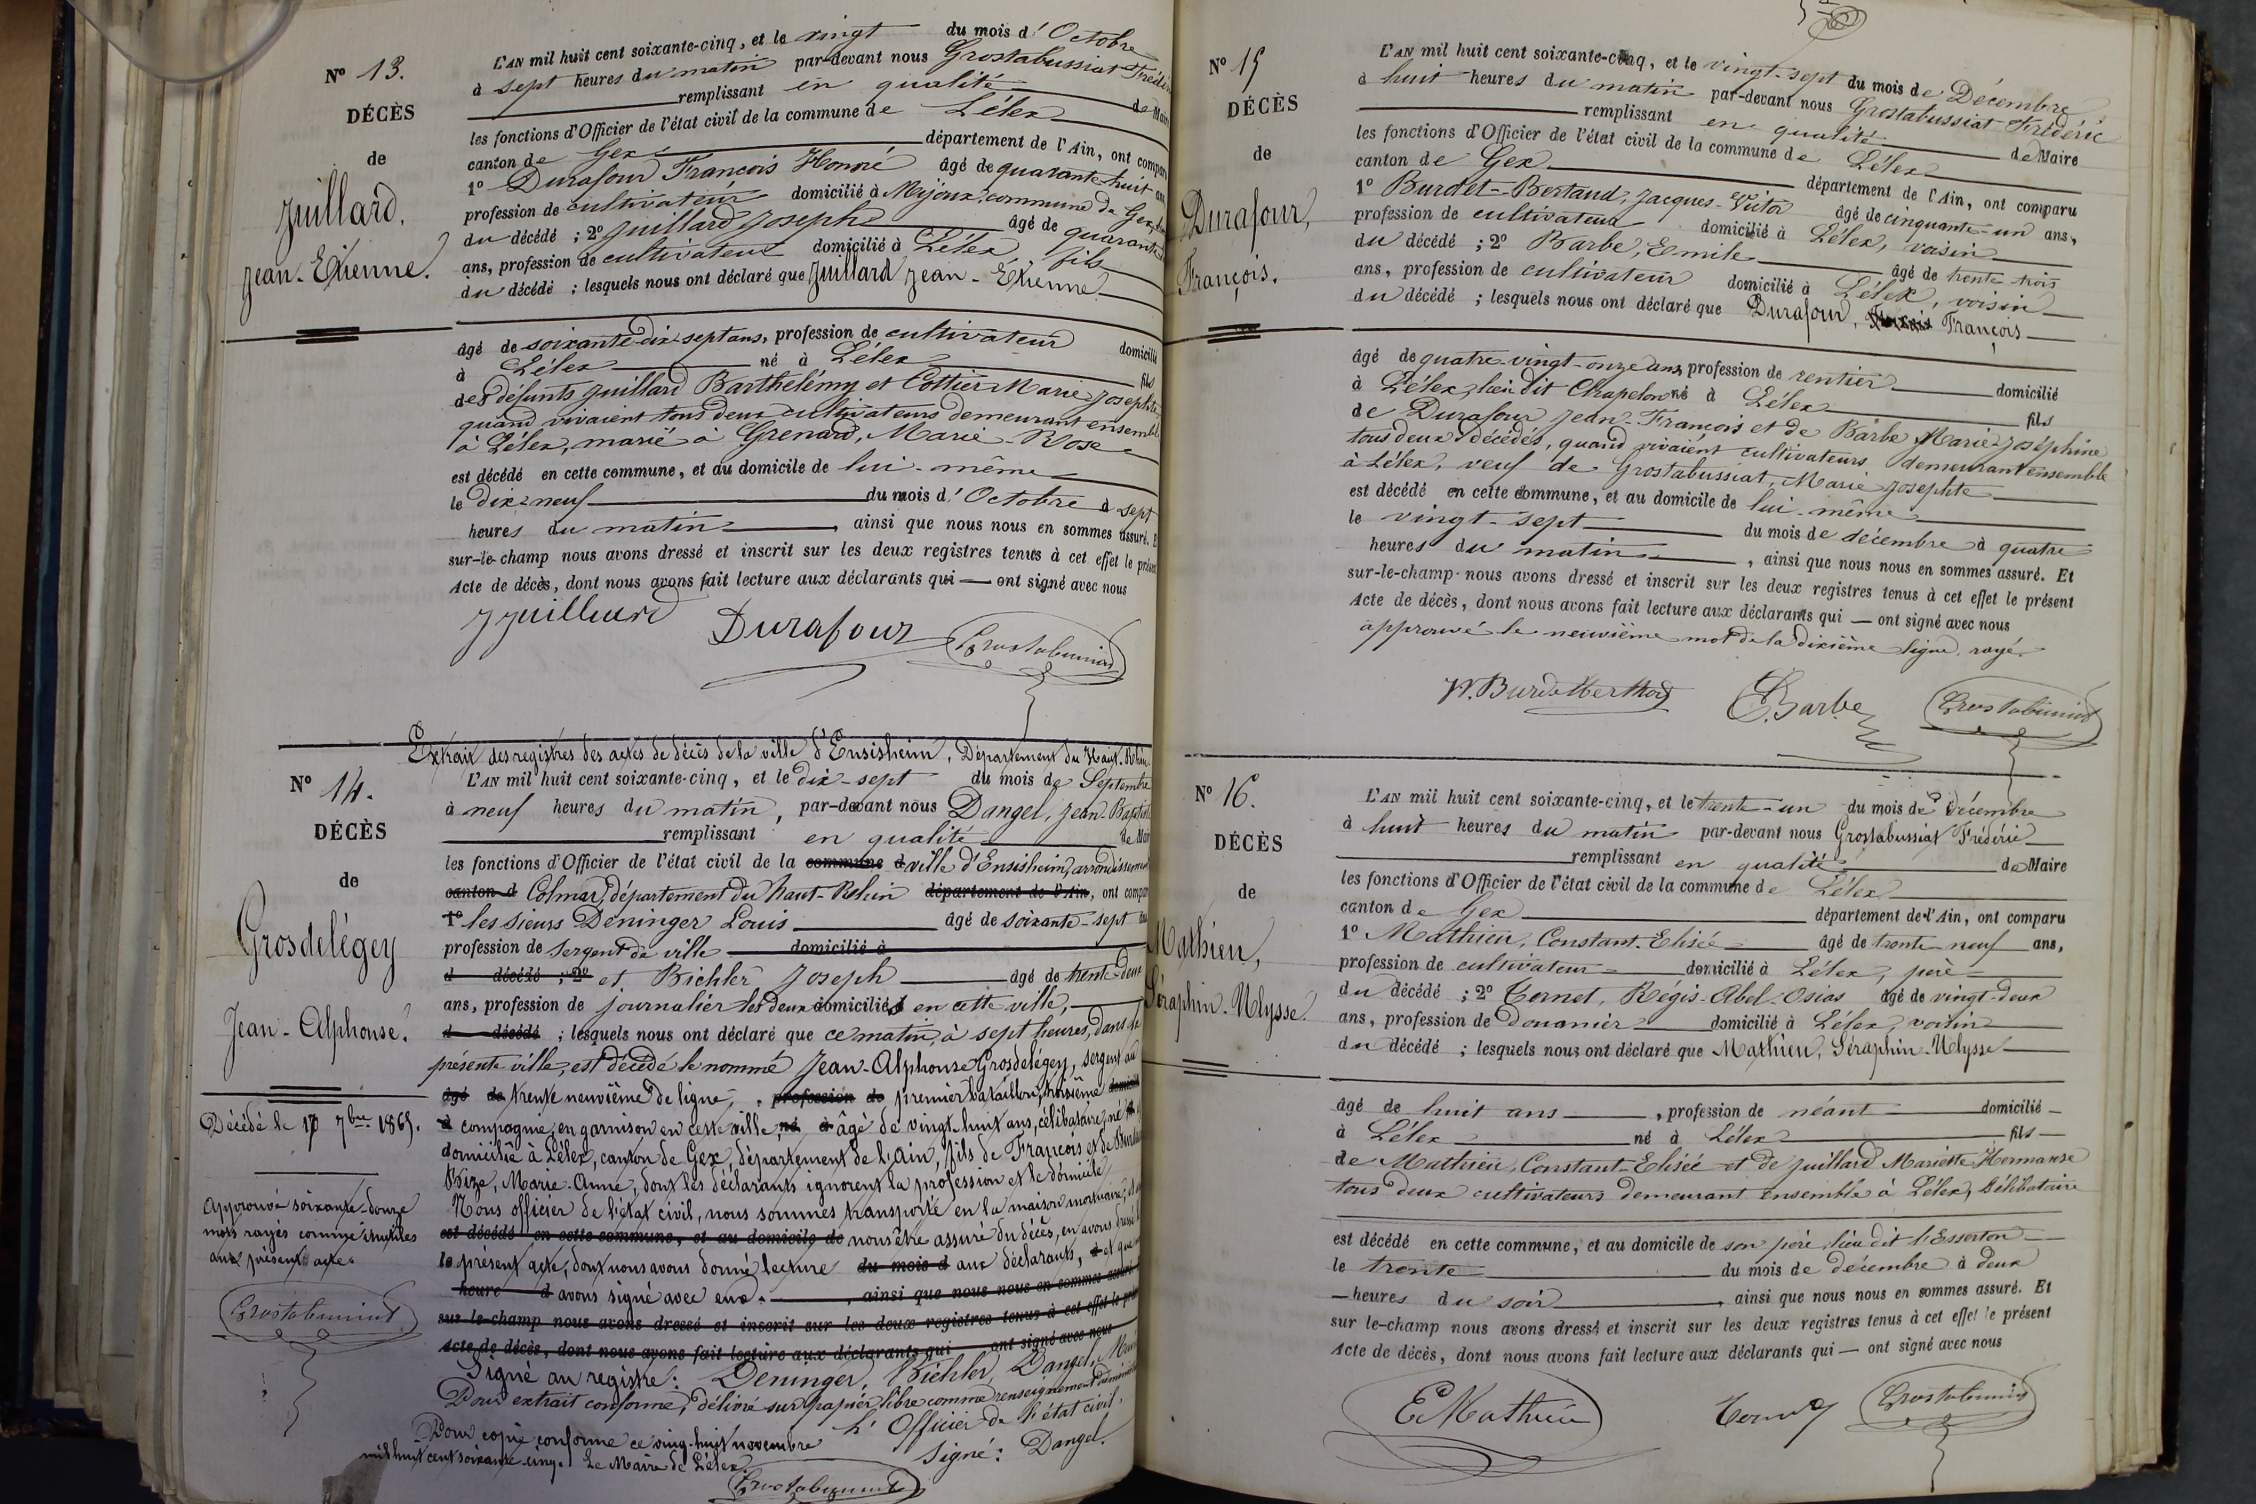 N° 13.
DÉCÈS
de
Juillard,
Jean-Etienne.
L'AN mil huit cent soixante-cinq, et le vingt du mois d'Octobre
à sept heures du matin par-devant nous Grostabussiat Frédéric
remplissant en qualité de Maire
les fonctions d'Officier de l'état civil de la commune de Lélex
canton de Gex département de l'Ain, ont comparu
1° Durafour François Honoré âgé de quarante-huit ans
profession de cultivateur domicilié à Mijoux, commune de Gex,
du décédé ; 2° Juillard Joseph âgé de quarante
ans, profession de cultivateur domicilié à Lélex, fils
du décédé ; lesquels nous ont déclaré que Juillard Jean-Étienne
âgé de soixante-dix-sept ans, profession de cultivateur domicilié
à Lélex né à Lélex fils
des défunts Juillard Barthélémy et Cottier Marie Josephte
quand vivaient tous deux cultivateurs demeurant ensemble
à Lélex, marié à Grenard, Marie-Rose
est décédé en cette commune, et au domicile de lui-même
le dix-neuf du mois d'Octobre à sept
heures du matin, ainsi que nous nous en sommes assuré. Et
sur-le-champ nous avons dressé et inscrit sur les deux registres tenus à cet effet le présent
Acte de décès, dont nous avons fait lecture aux déclarants qui — ont signé avec nous
J Juillard Durafour Grostabussiat
Extrait des registres des actes de décès de la ville d'Ensisheim, Département du Haut-Rhin.
N° 14.
DÉCÈS
de
Grosdelégey
Jean-Alphonse.
Décédé le 17 7bre 1865.
Approuvé soixante-douze
mots rayés comme inutiles
au présent acte.
Grostabussiat
L'AN mil huit cent soixante-cinq, et le dix-sept du mois de Septembre
à neuf heures du matin, par-devant nous Dangel, Jean-Baptiste
remplissant en qualité de Maire
les fonctions d'Officier de l'état civil de la commune d ville d'Ensisheim, arrondissement
canton d Colmar, département du Haut-Rhin département de l'Ain, ont comparu
1° les sieurs Deninger Louis âgé de soixante-sept ans
profession de sergent de ville domicilié à
d décédé ; 2° et Bichler Joseph âgé de trente-deux
ans, profession de journalier les deux domiciliés en cette ville,
d décédé ; lesquels nous ont déclaré que ce matin, à sept heures, dans la
présente ville, est décédé le nommé Jean-Alphonse Grosdelégey, sergent au
âgé de trente neuvième de ligne, profession de premier bataillon, troisième domicilié
à compagnie, en garnison en cette ville, né à âgé de vingt-huit ans, célibataire, né
domicilié à Lélex, canton de Gex, département de l'Ain, fils de François et de
Bize, Marie-Anne, dont les déclarants ignorent la profession et le domicile
Nous officier de l'état civil, nous sommes transporté en la maison mortuaire,
est décédé en cette commune, et au domicile de nous être assuré du décès, en avons dressé
le présent acte, dont nous avons donné lecture du mois d aux déclarants, à et que
heure d avons signé avec eux. , ainsi que nous nous en sommes assuré
sur-le-champ nous avons dressé et inscrit sur les deux registres tenus à cet effet le présent
Acte de décès, dont nous avons fait lecture aux déclarants qui ont signé avec nous
Signé au registre : Deninger, Bichler, Dangel, Maire
Pour extrait conforme, délivré sur papier libre comme renseignement
L'Officier de l'état civil,
Signé : Dangel.
Pour copie conforme ce vingt-huit novembre
mil huit cent soixante-cinq. Le Maire de Lélex.
Grostabussiat
N° 15
DÉCÈS
de
Durafour,
François.
L'AN mil huit cent soixante-cinq, et le vingt-sept du mois de Décembre
à huit heures du matin par-devant nous Grostabussiat Frédéric
remplissant en qualité de Maire
les fonctions d'Officier de l'état civil de la commune de Lélex
canton de Gex département de l'Ain, ont comparu
1° Burdet-Bertaud, Jacques-Victor âgé de cinquante-un ans,
profession de cultivateur domicilié à Lélex, voisin
du décédé ; 2° Barbe, Emile âgé de trente trois
ans, profession de cultivateur domicilié à Lélex, voisin
du décédé ; lesquels nous ont déclaré que Durafour, François
âgé de quatre-vingt-onze ans, profession de rentier domicilié
à Lélex, lieu dit Chapelon né à Lélex fils
de Durafour Jean-François et de Barbe Marie-Joséphine
tous deux décédés, quand vivaient cultivateurs demeurant ensemble
à Lélex, veuf de Grostabussiat, Marie Josephte
est décédé en cette commune, et au domicile de lui-même
le vingt-sept du mois de décembre à quatre
heures du matin, ainsi que nous nous en sommes assuré. Et
sur-le-champ nous avons dressé et inscrit sur les deux registres tenus à cet effet le présent
Acte de décès, dont nous avons fait lecture aux déclarants qui — ont signé avec nous
approuvé le neuvième mot de la dixième ligne, rayé.
E. Barbe Grostabussiat
N° 16.
DÉCÈS
de
Mathieu,
Séraphin-Ulysse.
L'AN mil huit cent soixante-cinq, et le trente-un du mois de décembre
à huit heures du matin par-devant nous Grostabussiat Frédéric
remplissant en qualité de Maire
les fonctions d'Officier de l'état civil de la commune de Lélex
canton de Gex département de l'Ain, ont comparu
1° Mathieu, Constant-Elisée âgé de trente-neuf ans,
profession de cultivateur domicilié à Lélex, père
du décédé ; 2° Cornet, Régis-Abel-Osias âgé de vingt-deux
ans, profession de douanier domicilié à Lélex, voisin
du décédé ; lesquels nous ont déclaré que Mathieu, Séraphin-Ulysse
âgé de huit ans, profession de néant domicilié
à Lélex né à Lélex fils
de Mathieu, Constant-Elisée et de Juillard Mariette Hermanse
tous deux cultivateurs demeurant ensemble à Lélex, Célibataire
est décédé en cette commune, et au domicile de son père, lieu dit l'Esserton
le trente du mois de décembre à deux
heures du soir, ainsi que nous nous en sommes assuré. Et
sur le-champ nous avons dressé et inscrit sur les deux registres tenus à cet effet le présent
Acte de décès, dont nous avons fait lecture aux déclarants qui — ont signé avec nous
E Mathieu Grostabussiat